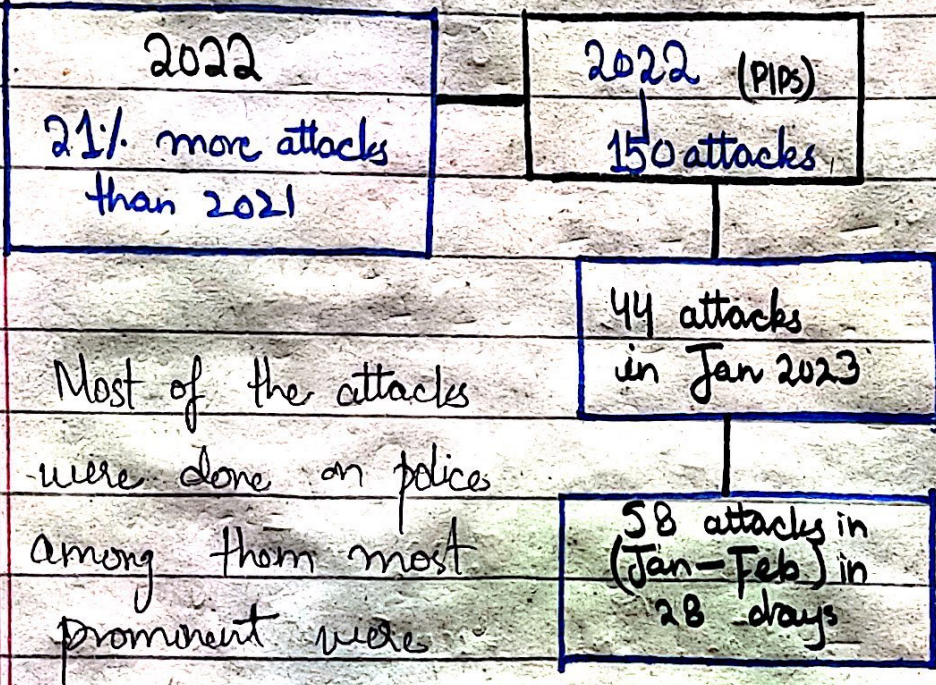 2022
21% more attacks
than 2021
2022 (PIPs)
150 attacks
44 attacks
in Jan 2023
58 attacks in
(Jan-Feb) in
28 days
Most of the attacks
were done on police
among them most
prominent were